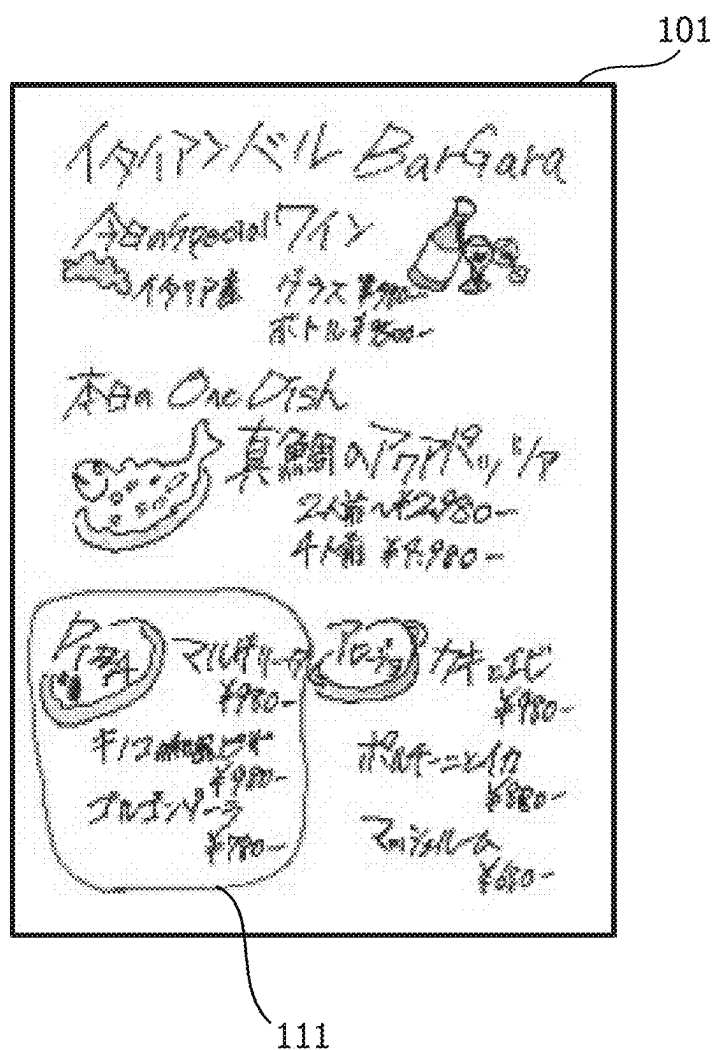 101
イタリアンバル BarGara
今日のSpecial ワイン
イタリア産 グラス
ボトル
本日の One Dish
真鯛のアクアパッツァ
2人前~¥2,980-
4人前 ¥4,980-
マルゲリータ
¥980-
キノコの和風ピザ
¥980-
ゴルゴンゾーラ
¥780-
アヒージョ
カキとエビ
¥980-
ポルチーニとイカ
¥880-
マッシュルーム
¥680-
111